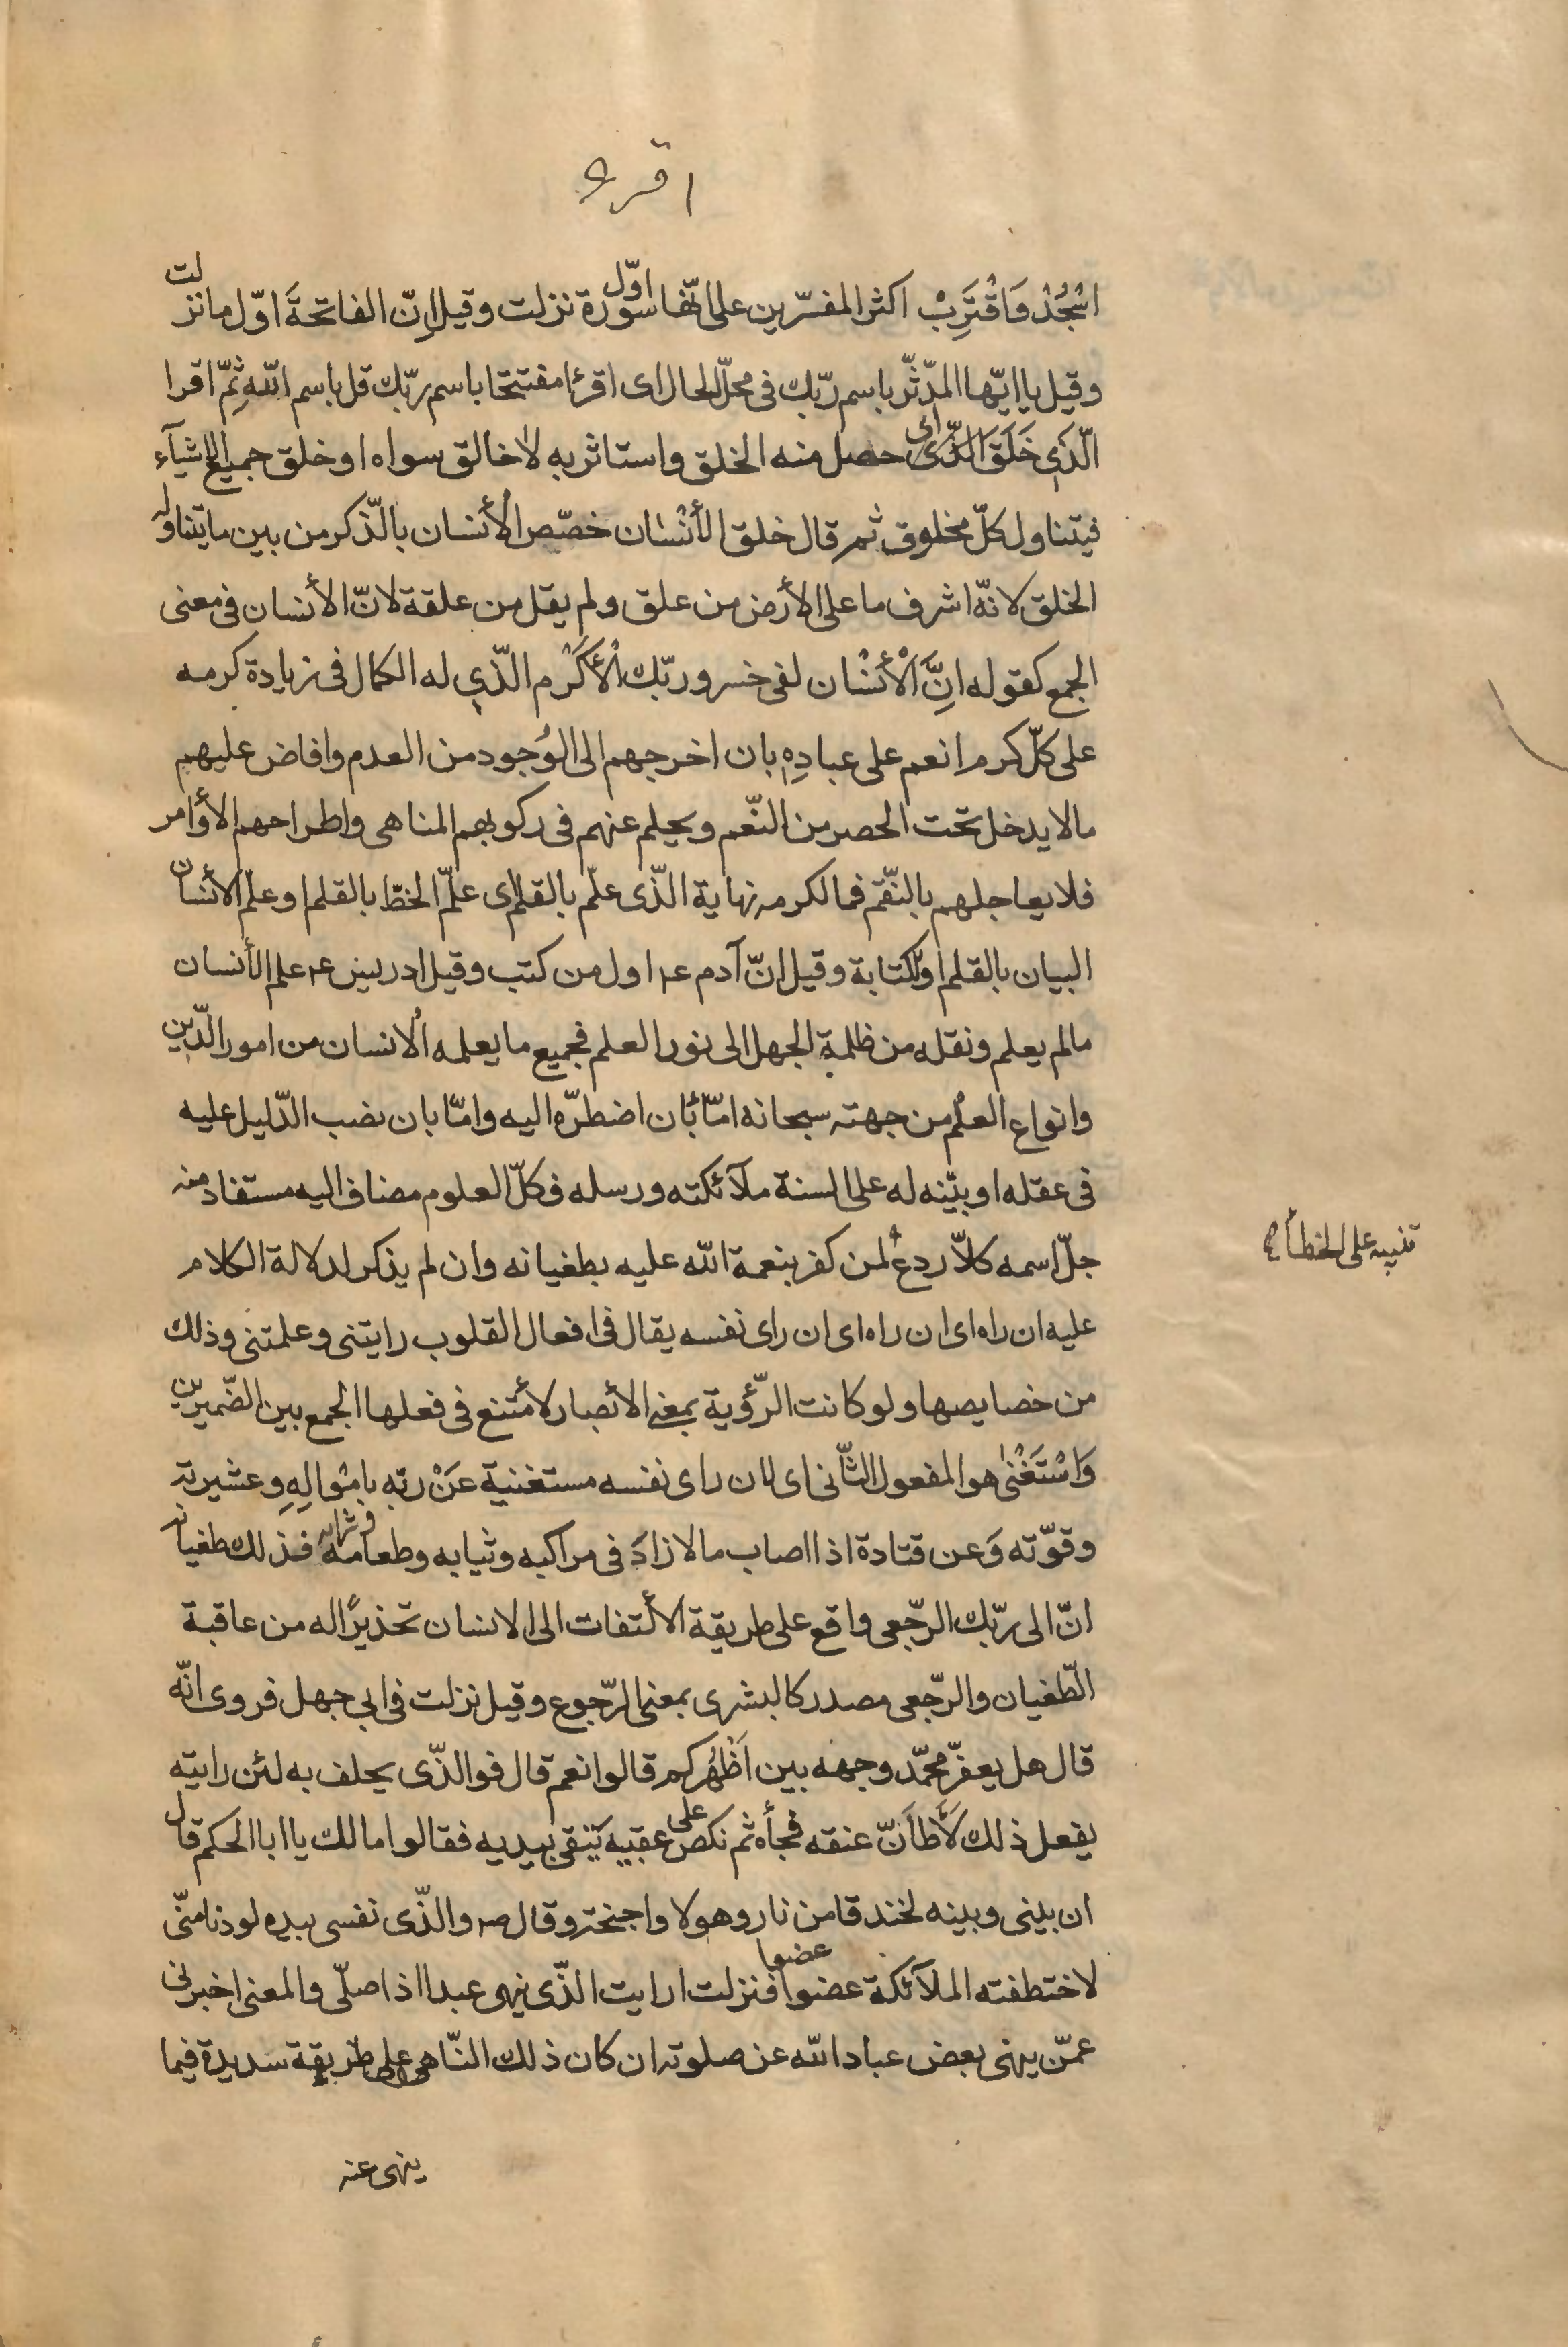 اقرء
اسْجُدْ وَاقْتَرِبْ اكثر المفسّرين على انّها اوّل سورة نزلت وقيل اِنّ الفاتحةَ اوّل ما نزلت
وقيل يا ايّها المدّثّر باسم ربّك فى محلّ الحال اى اقرءا مفتتحا باسم ربّك قل باسم اللّه ثمّ اقرا
الّذى خَلَقَ اى الّذى حصل منه الخلق واستاثر به لا خالق سواه او خلق جميع الاشيآء
فيتناول كلّ مخلوق ثم قال خلق الأنْسٰان خصّص الأنسان بالّذكر من بين ما يتناوله
الخلق لانّه اشرف ما على الأرض من علق ولم يقل من علقة لانّ الأنسان فى معنى
الجمع كقوله انَّ الْأنْسٰان لفى خسر وربّك الْأكْرَم الّذى له الكمال فى زيادة كرمه
على كلّ كرم انعم على عبادِهِ بان اخرجهم الى الوُجود من العدم وافاض عليهم
مالا يدخل تحت الحصر من النّعم ويحلم عنهم فى ركوبهم المناهى واطراحهم الأوامر
فلا يعاجلهم بالنّقم فما لكرمه نهاية الّذى علّم بالقلم اى علّم الخطّ بالقلم او علّم الأنسان
البيان بالقلم او الكتابة وقيل انّ آدم ع اول من كتب وقيل ادريس ع علم الأنسان
مالم يعلم ونقله من ظلمة الجهل الى نور العلم فجميع ما يعلمه الانسان من امور الّدين
وانواع العلم من جهته سبحانه امّا بأن اضطرّه اليه وامّا بان نضب الدّليل عليه
فى عقله او بيّنه له على السنة ملآئكته ورسله فكلّ العلوم مضاف اليه مستفاد منه
جلّ اسمه كلاّ ردع لمن كفر بنعمة اللّه عليه بطغيانه وان لم يذكر لدلالة الكلام
تنبيه على الخطأ
عليه ان راه اى ان راه اى ان راى نفسه يقال فى افعال القلوب رايتنى وعلمتنى وذلك
من خصايصها ولو كانت الرّؤية بمعنى الأبصار لأمتنع فى فعلها الجمع بين الضّميرين
وَاسْتَغْنىٰ هو المفعول الثّانى اى لان راى نفسه مستغنية عَنْ ربّه بامْوالِهِ وعشيرته
وقوّته وَعن قتادة اذا اصاب مالا زادَ فى مراكبه وثيابه وطعامه وشرابه فذلك طغيانه
انّ الى ربّك الرّجعى واقع على طريقة الألتفات الى الانسان تحذيرًا له من عاقبة
الطّغيان والرّجعى مصدر كالبشرى بمعنى الرّجوع وقيل نزلت فى ابي جهل فروى انّه
قال هل يعفرّ محمّد وجهه بين اَظْهُركم قالوا نعم قال فو الذّى يحلف به لئن رايته
يفعل ذلك لَأطأَنّ عنقه فجأه ثم نكص على عقبيه يتقى بيديه فقالوا مالك يا ابا الحكم قال
ان بينى وبينه لخندقا من نار وهولا واجنحة وقال ص والذّى نفسى بيده لو دنا منّى
لاختطفته الملآئكة عضوا عضوا فنزلت ارايت الذّى ينهى عبدا اذا صلّى والمعنى اخبرنى
عمّن ينهى بعض عباد اللّه عن صلوته ان كان ذلك النّاهى على طريقة سديدة فيما
ينهى عنه